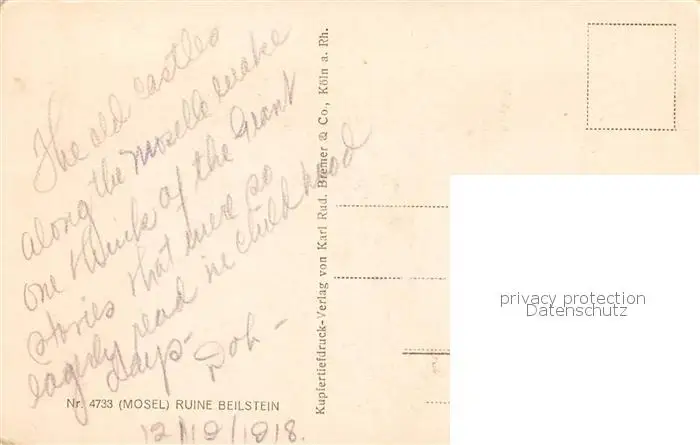 The old castles
along the Moselle make
one think of the Giant
stories that were so
eagerly read in childhood
days -
Nr. 4733 (MOSEL) RUINE BEILSTEIN
12/19/1918.
Kupfertiefdruck-Verlag von Karl Rud. Bremer & Co., Köln a. Rh.
privacy protection
Datenschutz